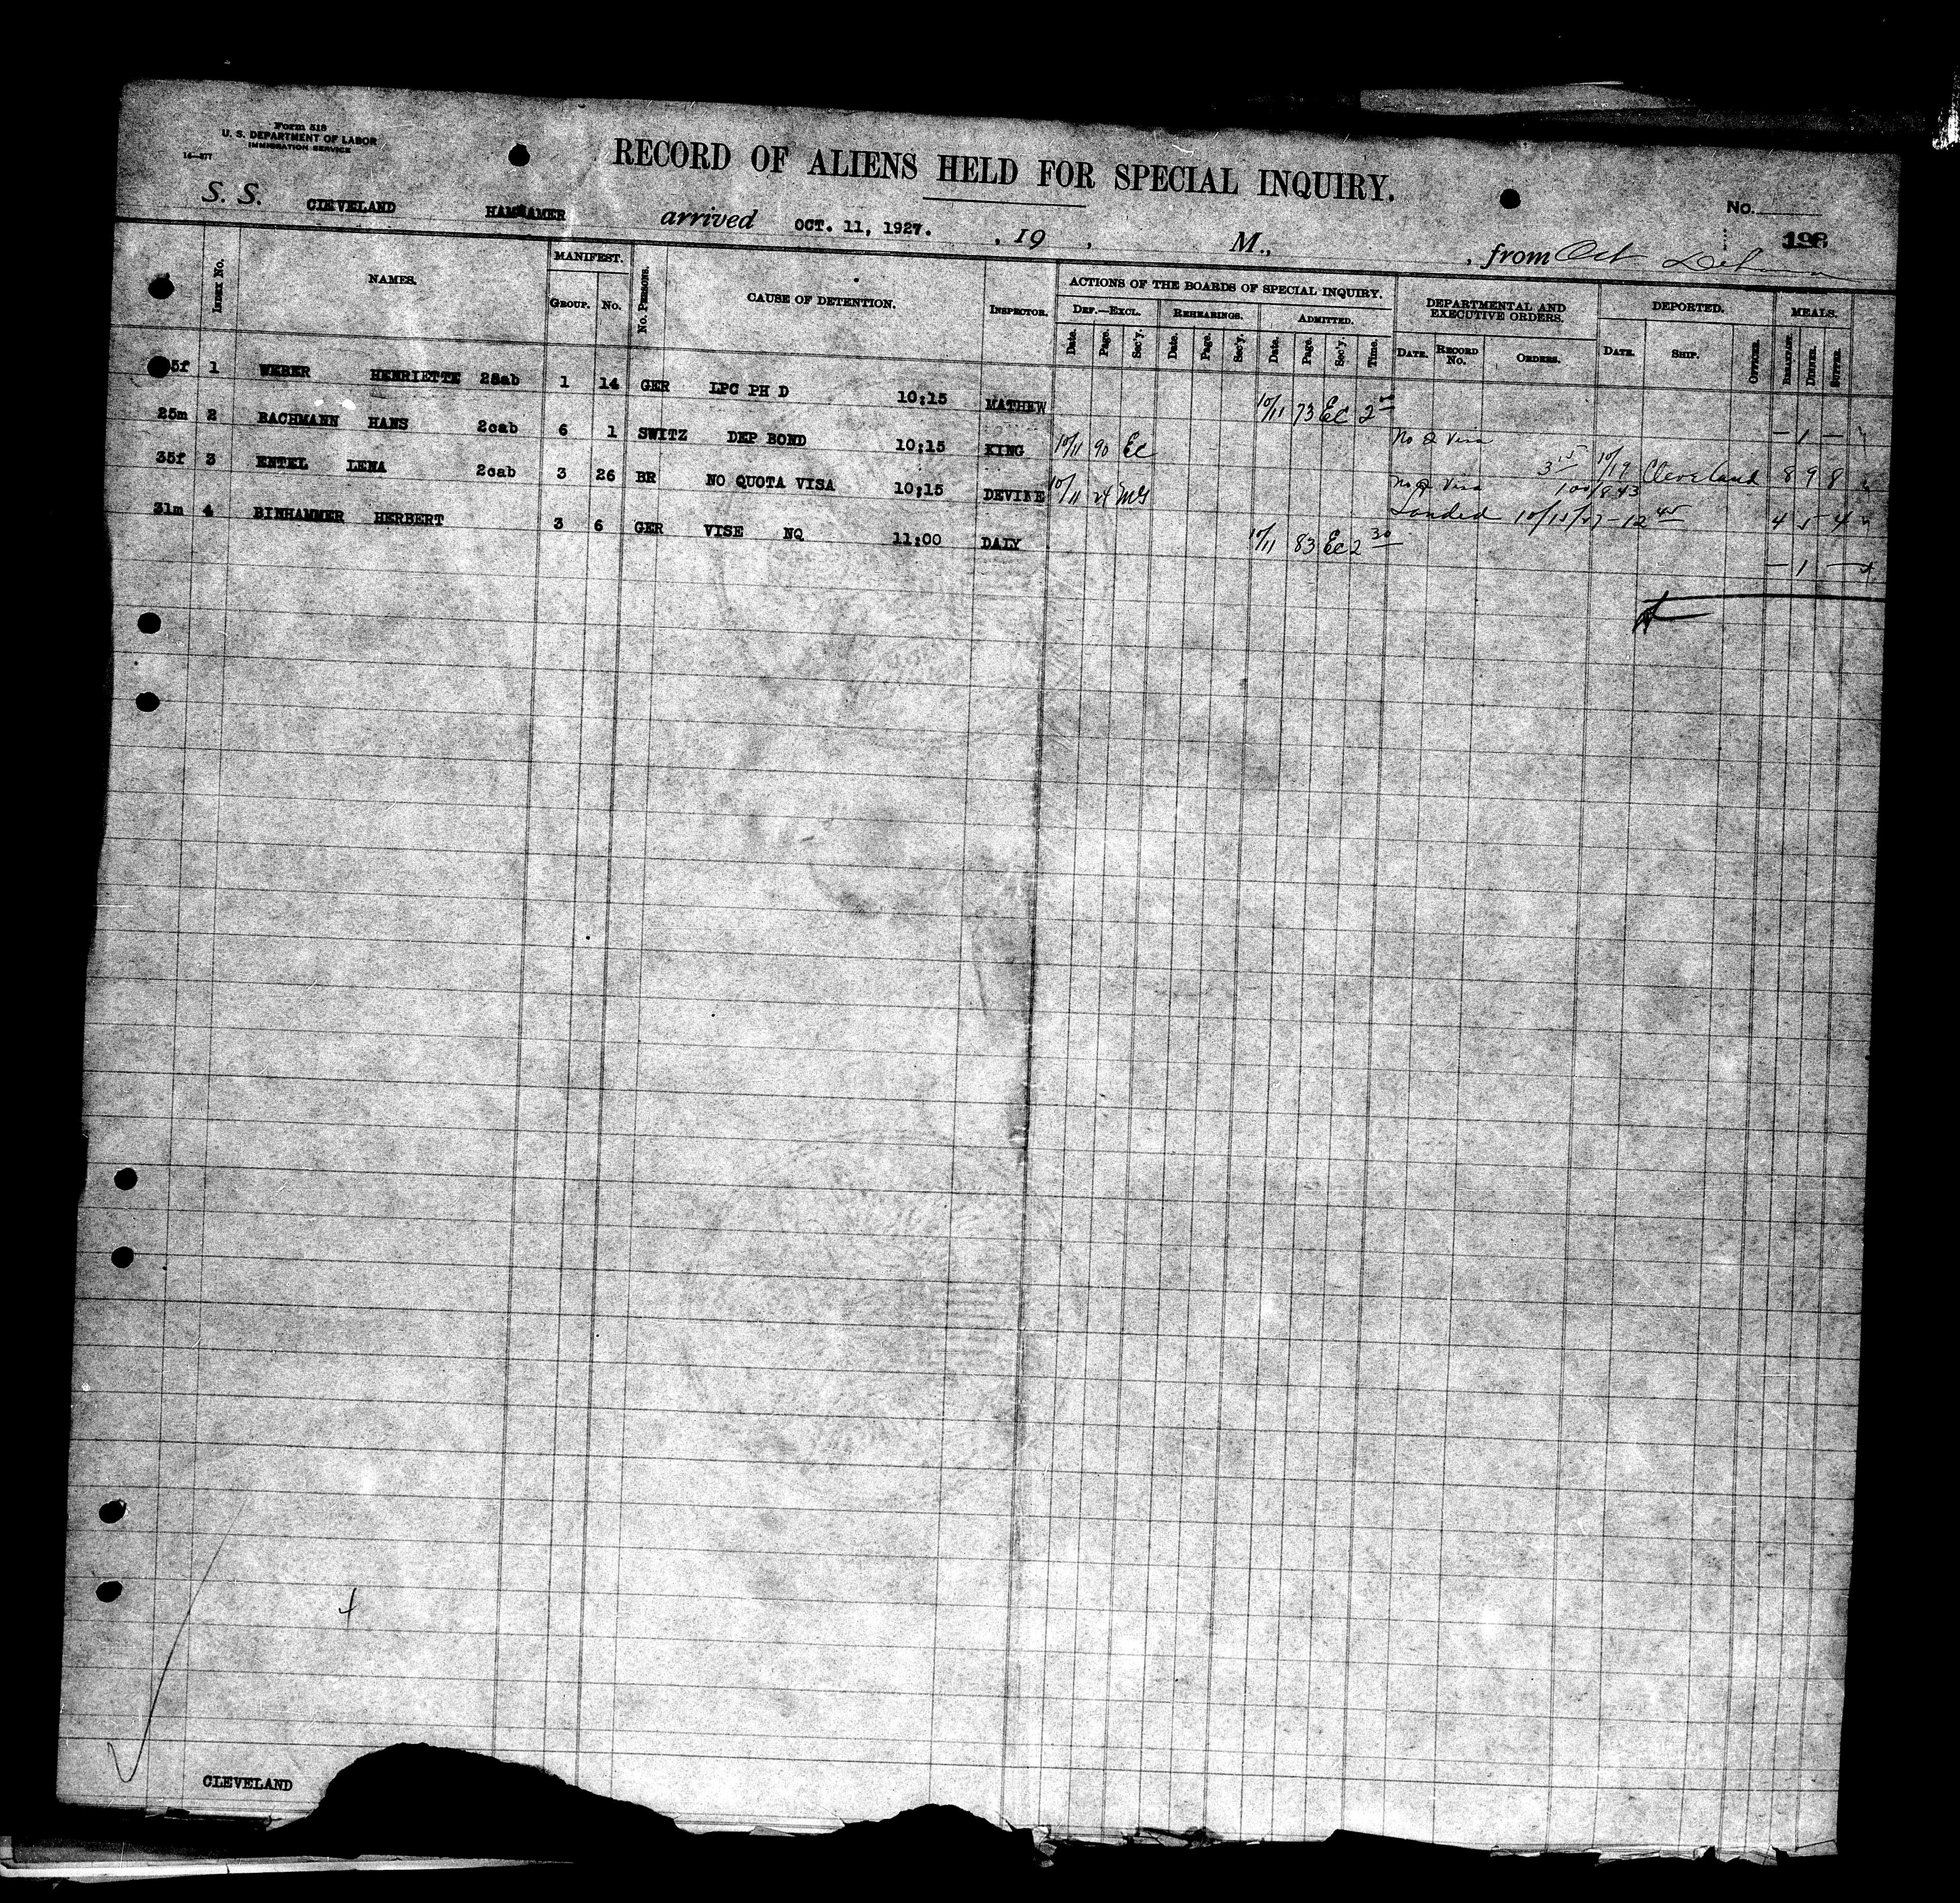 Form 518
U. S. DEPARTMENT OF LABOR
IMMIGRATION SERVICE
14—877
RECORD OF ALIENS HELD FOR SPECIAL INQUIRY.
No.
S. S. CLEVELAND HAMHAMER arrived OCT. 11, 1927. , 19 , M., , from Oct
198
Index No. NAMES. MANIFEST. Group. No. No. Persons. CAUSE OF DETENTION. Inspector. ACTIONS OF THE BOARDS OF SPECIAL INQUIRY. Def.—Excl. Date. Page. Sec'y. Rehearings. Date. Page. Sec'y. Admitted. Date. Page. Sec'y. Time. DEPARTMENTAL AND EXECUTIVE ORDERS. Date. Record No. Orders. DEPORTED. Date. Ship. Officer. MEALS. Breakfast. Dinner. Supper.
5f 1 WEBER HENRIETTE 2cab 1 14 GER LPC PH D 10:15 MATHEW 10/11 73 Ec 2 — 1 —
25m 2 BACHMANN HANS 2cab 6 1 SWITZ DEP BOND 10:15 KING 10/11 90 Ec No Q Visa 3 15 10/19 Cleveland 8 9 8
35f 3 ENTEL LENA 2cab 3 26 BR NO QUOTA VISA 10:15 DEVINE 10/11 24 MG No Q Visa Landed 10/15/27 - 12 45 4 5 4
31m 4 BINHAMMER HERBERT 3 6 GER VISE NQ 11:00 DALY 10/11 83 Ec 2 30 — 1 —
CLEVELAND